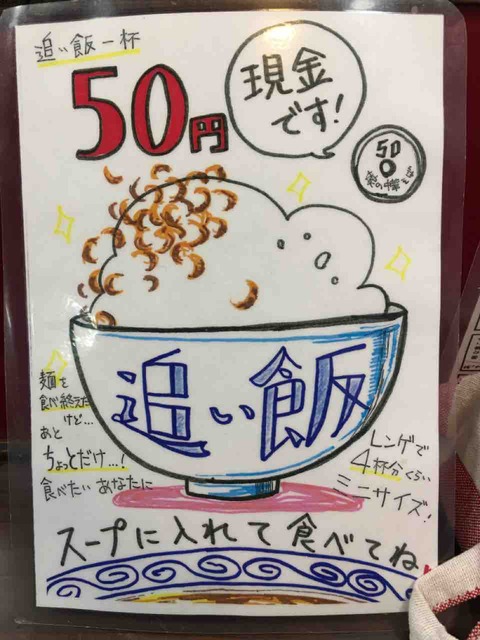 追い飯一杯
50円
現金
です!
50
追い飯
麺を
食べ終えた
けど…
あと
ちょっとだけ…!
食べたいあなたに
レンゲで
4杯分くらい
ミニサイズ!
スープに入れて食べてね!